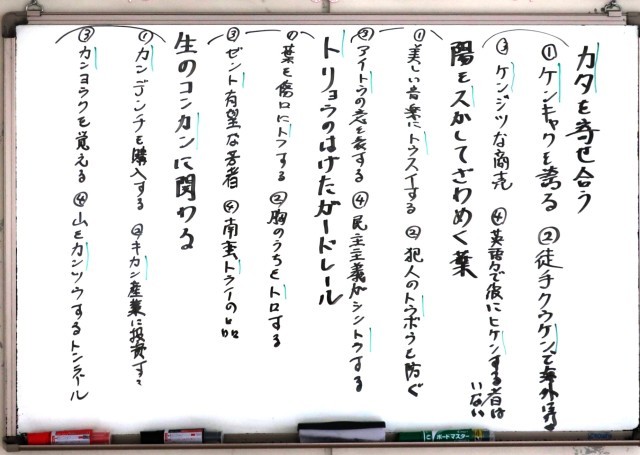 カタを寄せ合う
①ケンキャクを誇る ②徒手クウケンで海外に渡る
③ケンジツな商売 ④英語力で彼にヒケンする者はいない
陽をスかしてざわめく葉
①美しい音楽にトウスイする ②犯人のトウボウを防ぐ
③アイトウの意を表する ④民主主義がシントウする
トリョウのはげたガードレール
①薬を傷口にトフする ②胸のうちをトロする
③ゼント有望な若者 ④南蛮トライの品
生のコンカンに関わる
①カンデンチを購入する ②キカン産業に投資する
③カンヨウクを覚える ④山をカンツウするトンネル
ボードマスター